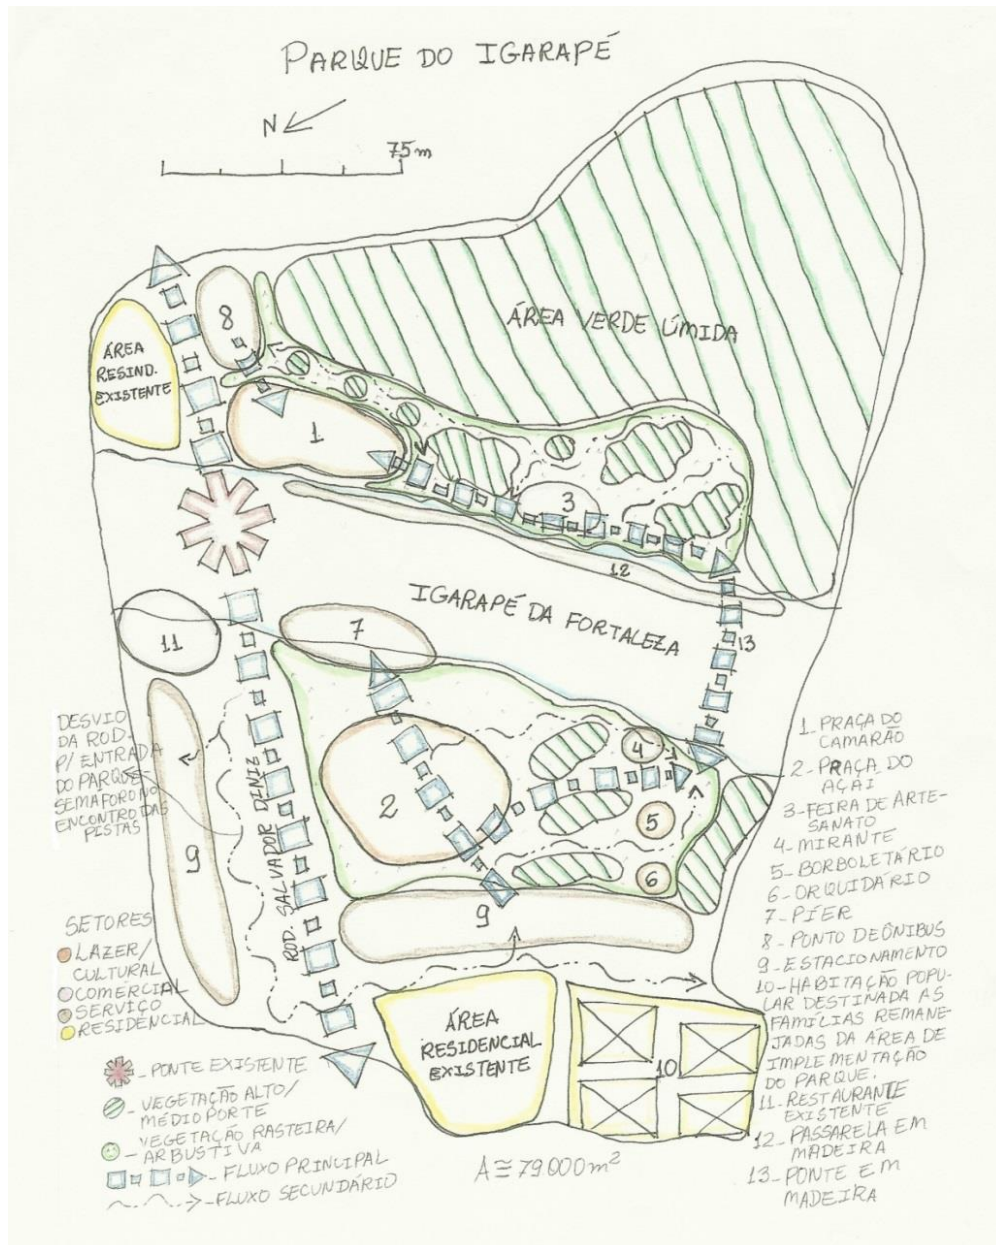 PARQUE DO IGARAPÉ
N
75m
8
ÁREA
RESIND.
EXISTENTE
ÁREA VERDE ÚMIDA
1
3
12
IGARAPÉ DA FORTALEZA
13
11
7
DESVIO
DA ROD.
P/ ENTRADA
DO PARQUE
SEMAFORO NO
ENCONTRO DAS
PISTAS
ROD. SALVADOR DINIZ
2
4
5
6
9
9
ÁREA
RESIDENCIAL
EXISTENTE
10
A≅79000m²
SETORES
LAZER/
CULTURAL
COMERCIAL
SERVIÇO
RESIDÊNCIAL
- PONTE EXISTENTE
- VEGETAÇÃO ALTO/
MÉDIO PORTE
- VEGETAÇÃO RASTEIRA/
ARBUSTIVA
- FLUXO PRINCIPAL
- FLUXO SECUNDÁRIO
1. PRAÇA DO
CAMARÃO
2- PRAÇA DO
AÇAI
3-FEIRA DE ARTE-
SANATO
4-MIRANTE
5-BORBOLETÁRIO
6-ORQUIDÁRIO
7-PÍER
8-PONTO DE ÔNIBUS
9-ESTACIONAMENTO
10-HABITAÇÃO POPU-
LAR DESTINADA AS
FAMÍLIAS REMANE-
JADAS DA ÁREA DE
IMPLEMENTAÇÃO
DO PARQUE.
11-RESTAURANTE
EXISTENTE
12-PASSARELA EM
MADEIRA
13-PONTE EM
MADEIRA